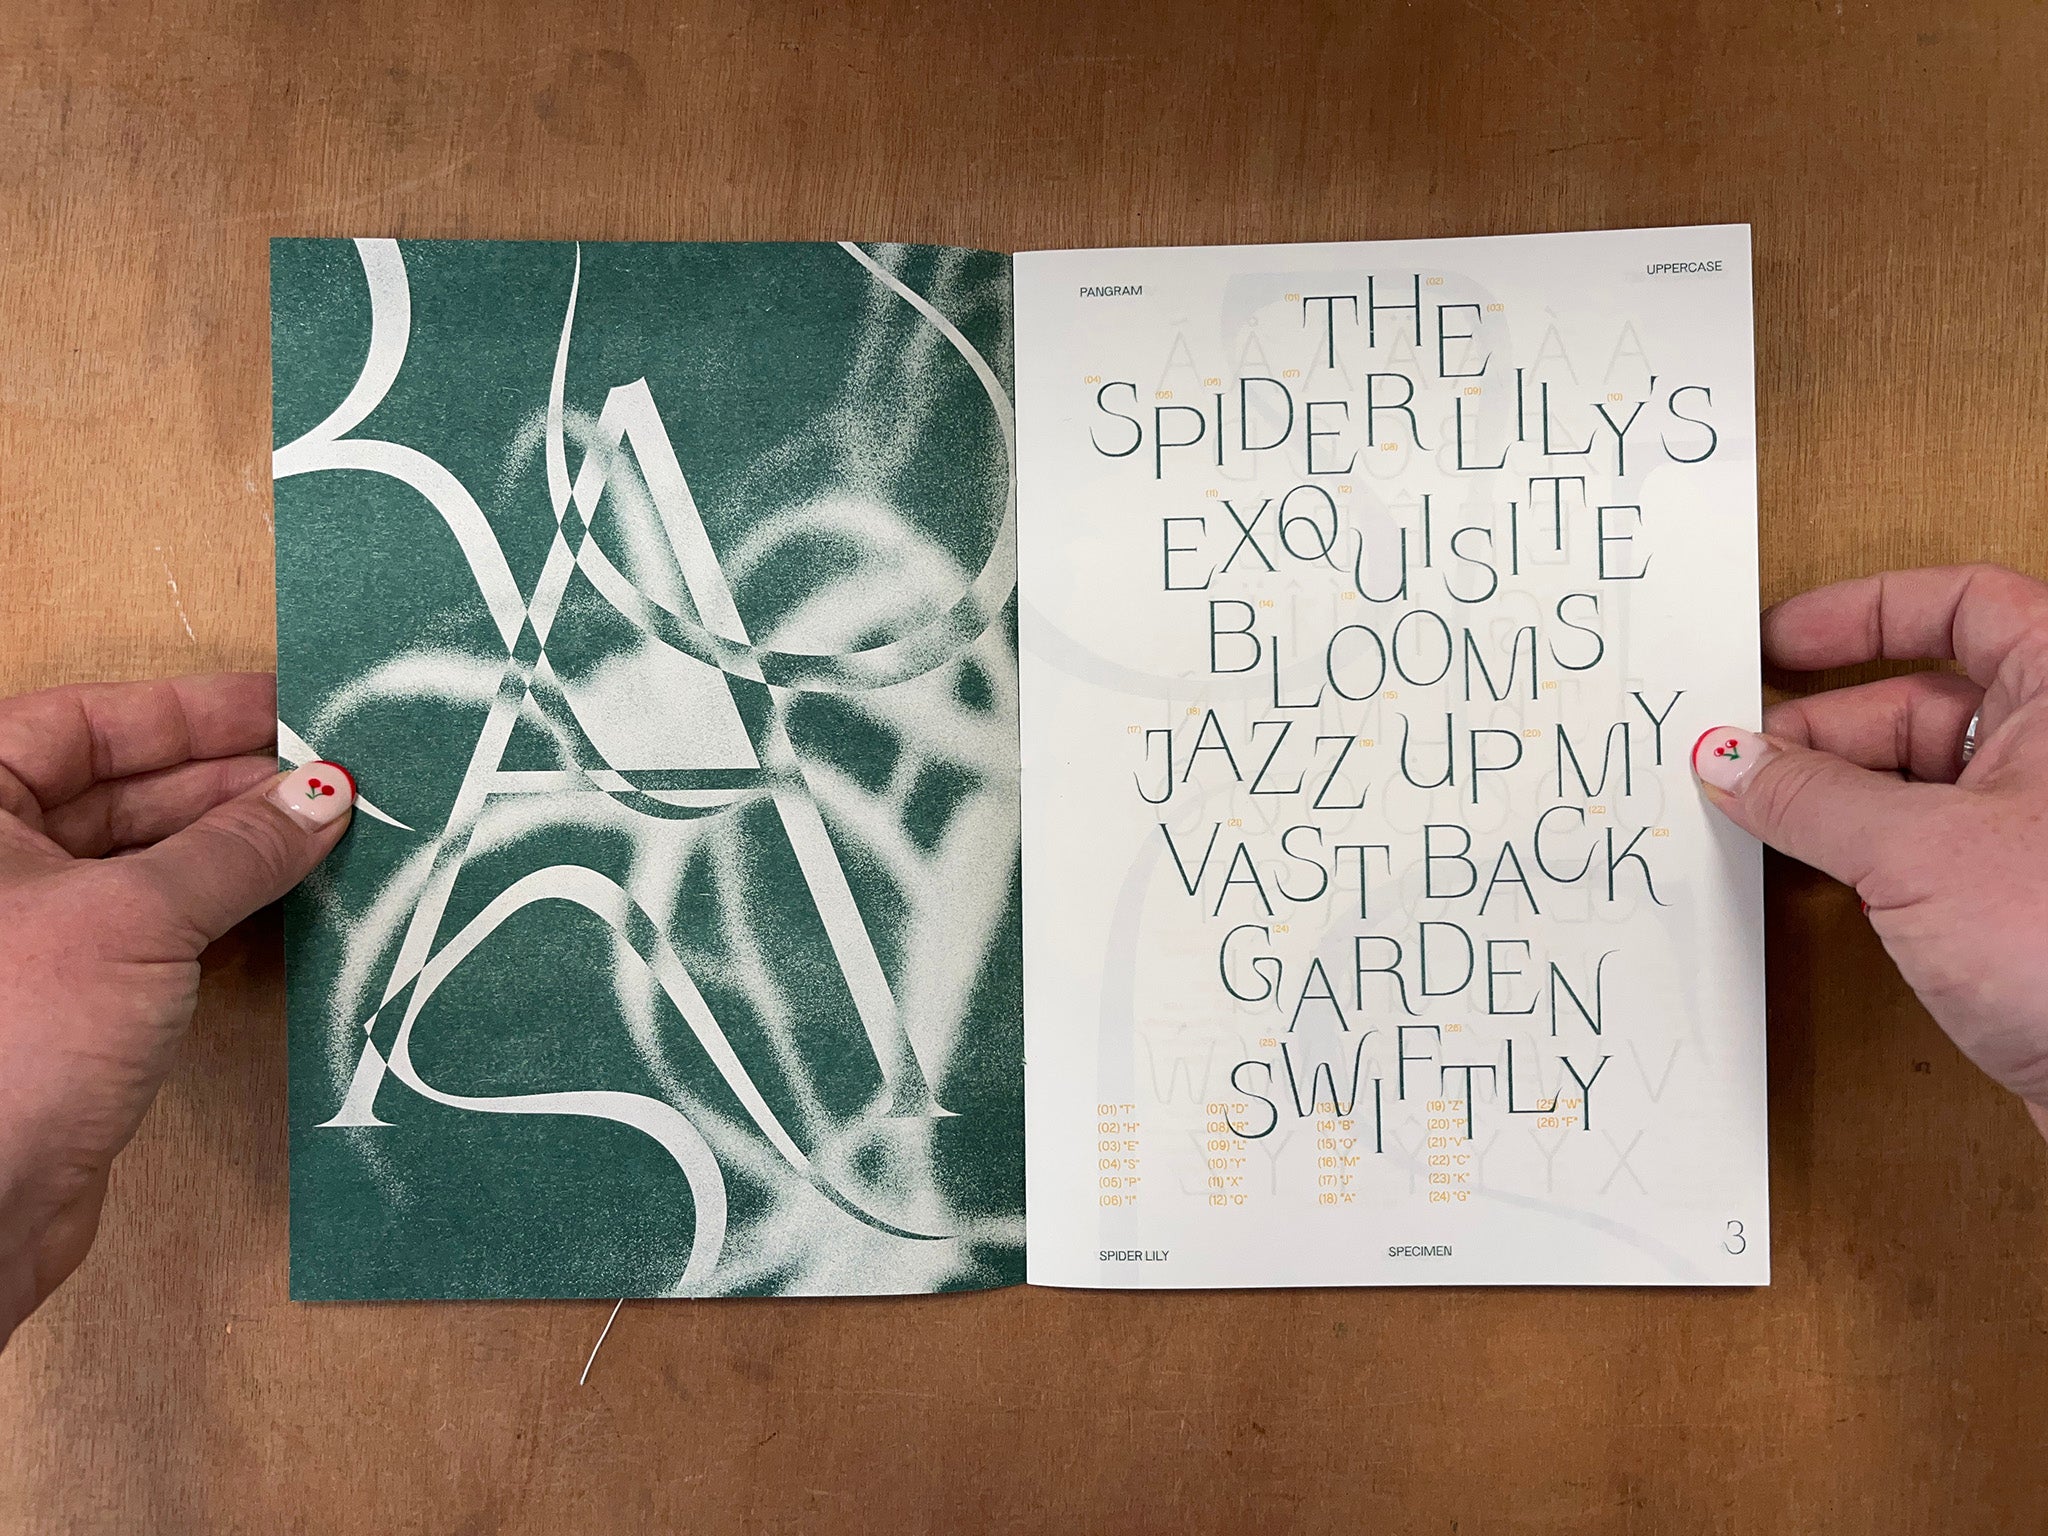 A
PANGRAM
UPPERCASE
THE
SPIDER LILY'S
EXQUISITE
BLOOMS
JAZZ UP MY
VAST BACK
GARDEN
SWIFTLY
(01) (02) (03)
(04) (05) (06) (07) (08) (09) (10)
(11) (12) (13)
(14) (15) (16)
(17) (18) (19) (20)
(21) (22) (23)
(24)
(25) (26)
(01) "T" (07) "D" (13) "U" (19) "Z" (25) "W"
(02) "H" (08) "R" (14) "B" (20) "P" (26) "F"
(03) "E" (09) "L" (15) "O" (21) "V"
(04) "S" (10) "Y" (16) "M" (22) "C"
(05) "P" (11) "X" (17) "J" (23) "K"
(06) "I" (12) "Q" (18) "A" (24) "G"
SPIDER LILY
SPECIMEN
3